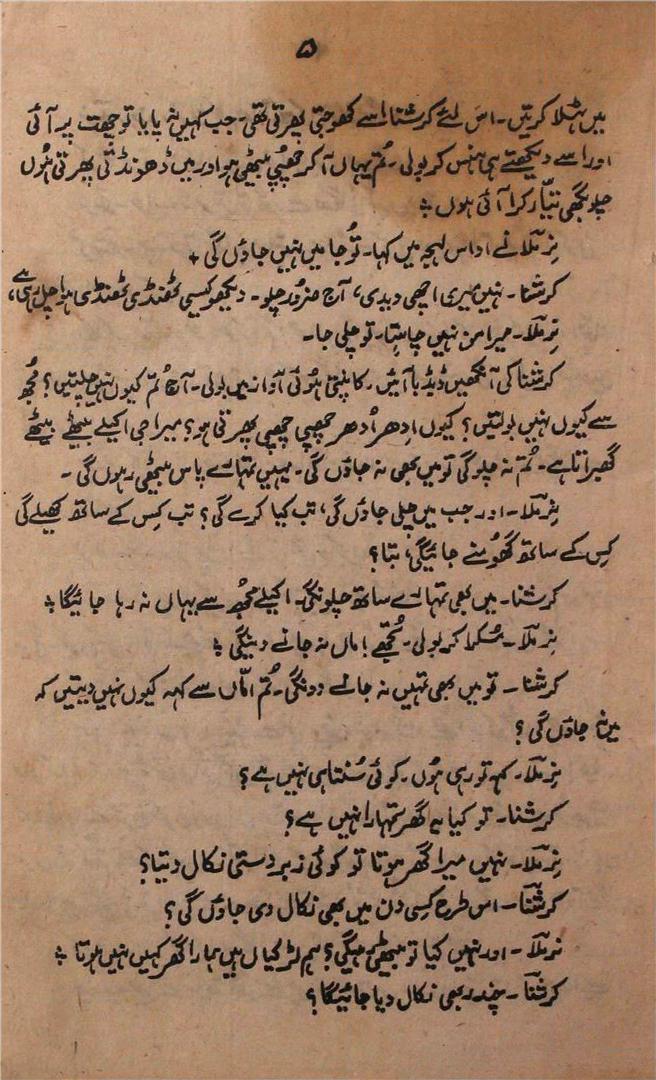 ۵
میں ٹہلا کرتیں۔ اس لئے کرشنا اسے کھوجتی پھرتی تھی۔ جب کہیں نہ پایا تو چھت پر آئی
اور اسے دیکھتے ہی ہنس کر بولی۔ تُم یہاں آ کر چھپی بیٹھی ہو اور میں ڈھونڈتی پھرتی ہُوں
چلو بگھی تیّار کرا آئی ہوں ؞
نِرملا نے اداس لہجہ میں کہا۔ تُو جا میں نہیں جاؤں گی ؞
کرشنا۔ نہیں میری اچھی دیدی، آج ضرُور چلو۔ دیکھو کیسی ٹھنڈی ٹھنڈی ہوا چل رہی ہے،
نِرملا۔ میرا من نہیں چاہتا۔ تو چلی جا۔
کرشنا کی آنکھیں ڈبڈبا آئیں۔ کانپتی ہُوئی آواز میں بولی۔ آج تُم کیوں نہیں چلتیں؟ مُجھ
سے کیوں نہیں بولتیں؟ کیوں اِدھر اُدھر چھپی چھپی پھرتی ہو؟ میرا جی اکیلے بیٹھے بیٹھے
گھبراتا ہے۔ تُم نہ چلو گی تو میں بھی نہ جاؤں گی۔ یہیں تمہارے پاس بیٹھی رہوں گی۔
نِرملا۔ اور جب میں چلی جاؤں گی، تب کیا کرے گی؟ تب کِس کے ساتھ کھیلے گی
کِس کے ساتھ گھُومنے جائیگی، بتا؟
کرشنا۔ میں بھی تمہارے ساتھ چلونگی۔ اکیلے مجُھ سے یہاں نہ رہا جائیگا ؞
نِرملا۔ مُسکرا کر بولی۔ تُجھے اماں نہ جانے دینگی ؞
کرشنا۔ تو میں بھی تمہیں نہ جانے دوونگی۔ تُم امّاں سے کہہ کیوں نہیں دیتیں کہ
میں نہ جاؤں گی؟
نِرملا۔ کہہ تو رہی ہُوں۔ کوئی سُنتا ہی نہیں ہے؟
کرشنا۔ تو کیا یہ گھر تمہارا نہیں ہے؟
نِرملا۔ نہیں میرا گھر ہوتا تو کوئی زبردستی نکال دیتا؟
کرشنا۔ اس طرح کسِی دن میں بھی نکال دی جاؤں گی؟
نرملا۔ اور نہیں کیا تو بیٹھی رہیگی؟ ہم لڑکیاں ہیں ہمارا گھر کہیں نہیں ہوتا ؞
کرشنا۔ چندر بھی نکال دیا جائیگا؟